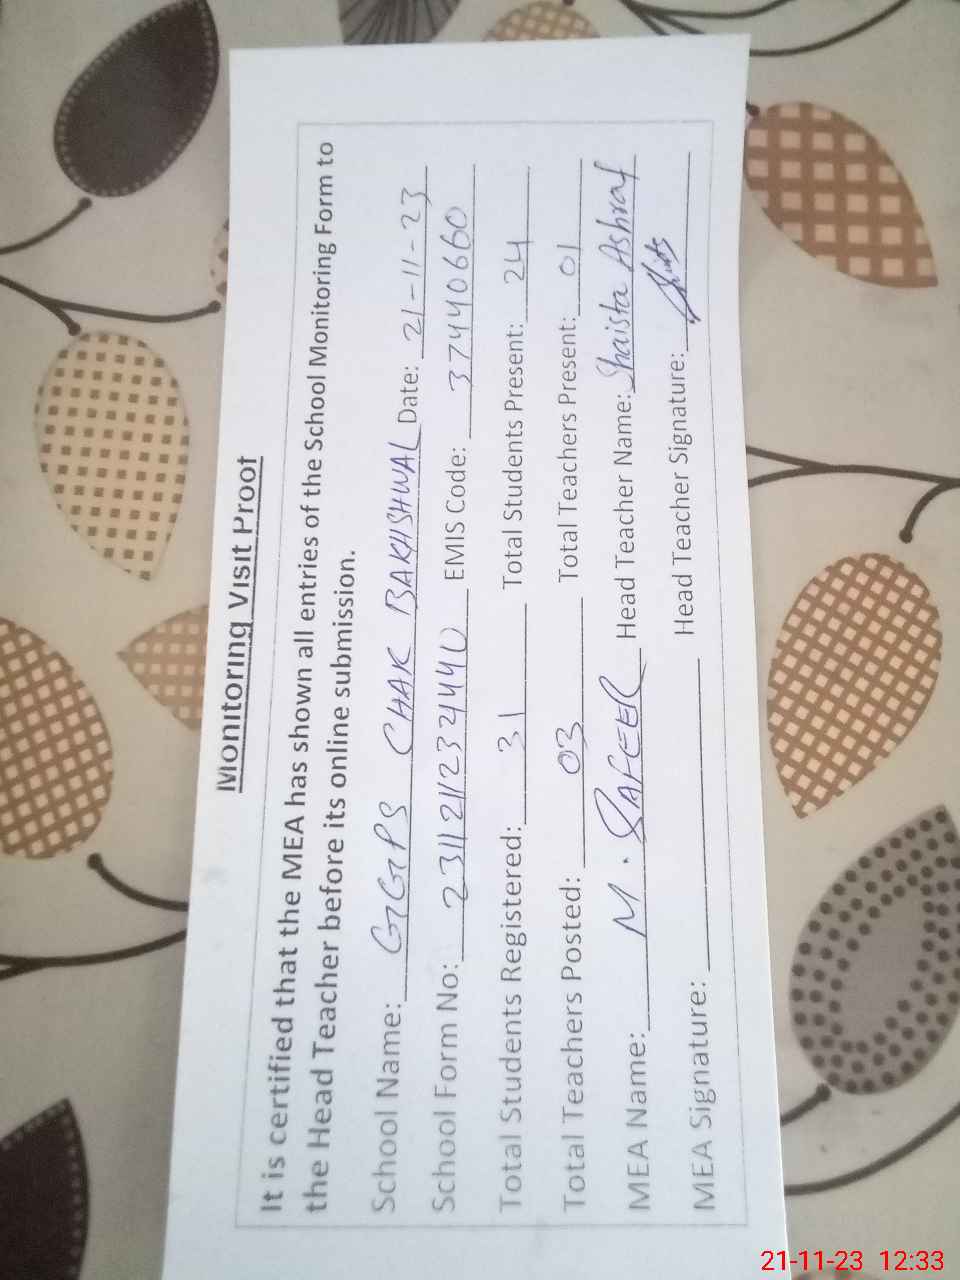 Monitoring Visit Proof
It is certified that the MEA has shown all entries of the School Monitoring Form to
the Head Teacher before its online submission.
School Name: GGPS CHAK BAKHSHWAL Date: 21-11-23
School Form No: 231121123244U EMIS Code: 37440660
Total Students Registered: 31 Total Students Present: 24
Total Teachers Posted: 03 Total Teachers Present: 01
MEA Name: M. SAFEER Head Teacher Name: Shaista Ashraf
MEA Signature: Head Teacher Signature:
21-11-23 12:33